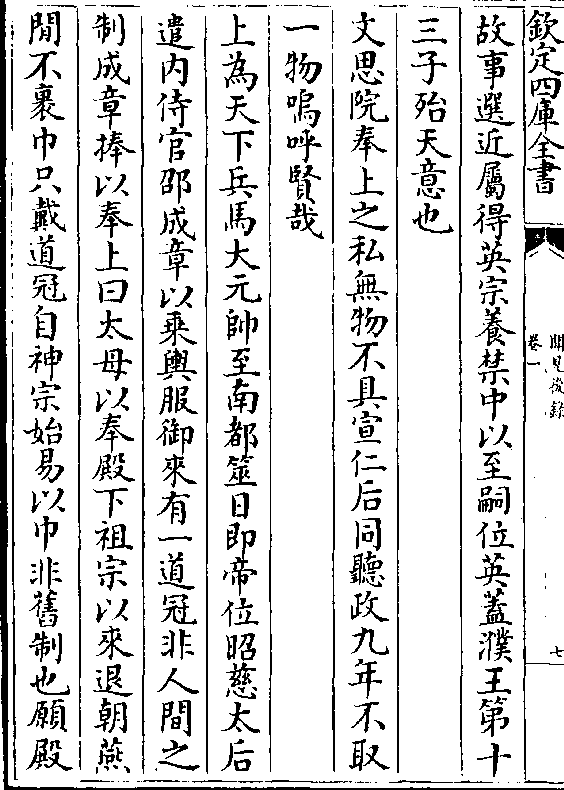 欽定四庫全書
聞見後錄
卷一
七
故事選近屬得英宗養禁中以至嗣位英蓋濮王第十
三子殆天意也
文思院奉上之私無物不具宣仁后同聽政九年不取
一物嗚呼賢哉
上為天下兵馬大元帥至南都筮日即帝位昭慈太后
遣内侍官邵成章以乘輿服御來有一道冠非人間之
制成章捧以奉上曰太母以奉殿下祖宗以來退朝燕
閒不裹巾只戴道冠自神宗始易以巾非舊制也願殿